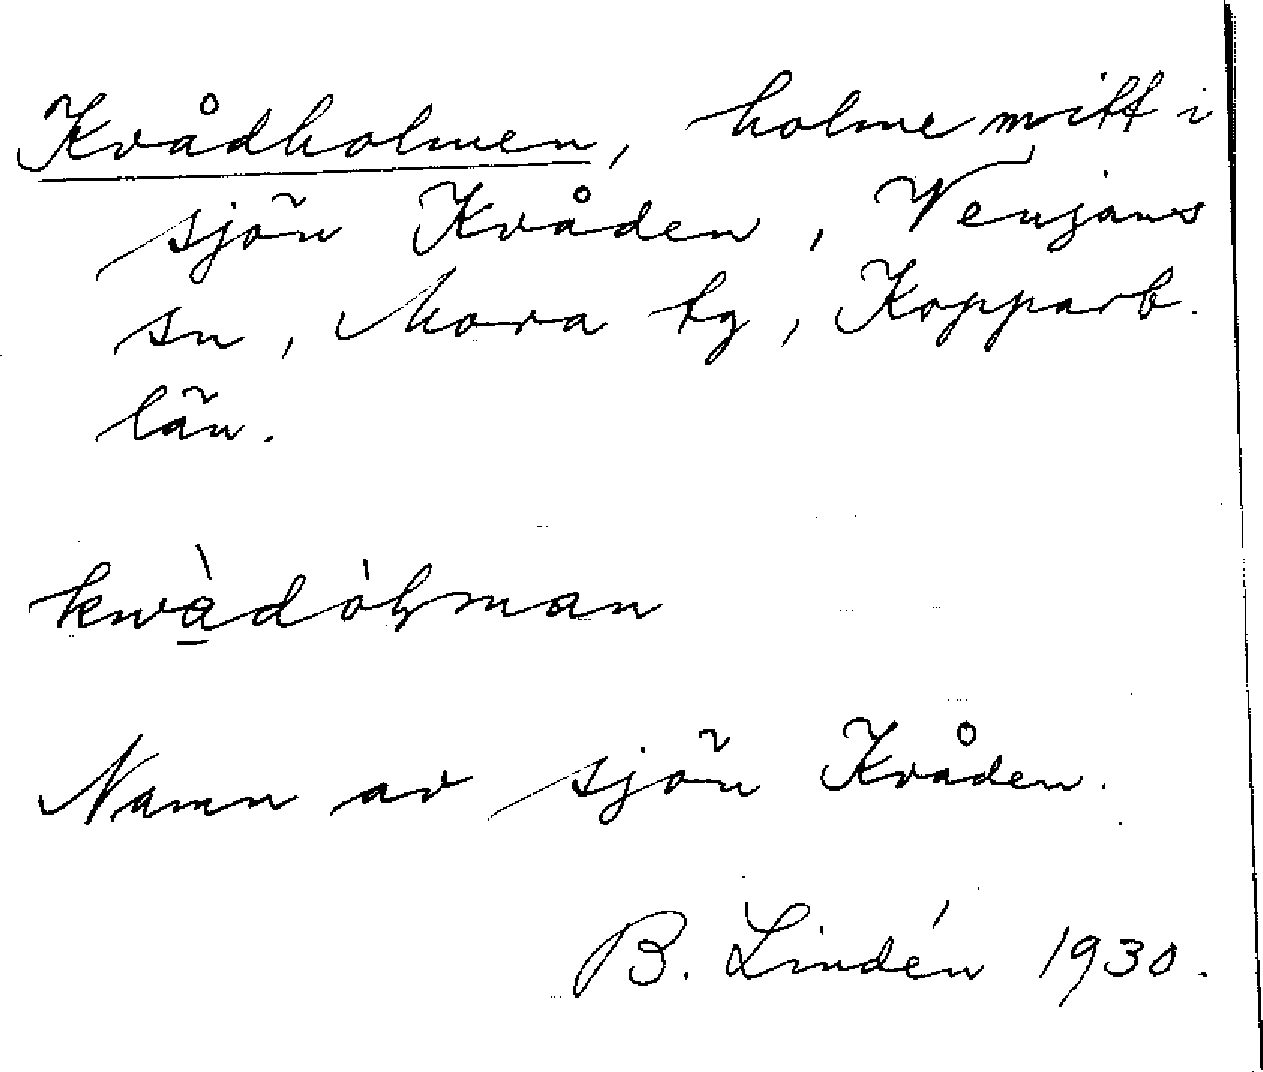 Kvådholmen, holme mitt i
sjön Kvåden, Venjans
sn, Mora tg, Kopparb.
län.
kwà̱dòɫman
Namn av sjön Kvåden.
B. Lindén 1930.